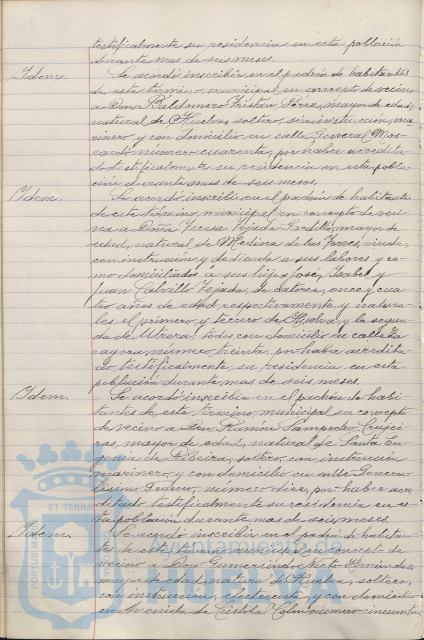 testificalmente su residencia en esta población
durante mas de seis meses.
Idem. Se acordó inscribir en el padrón de habitantes
de este término municipal en concepto de vecino
a Don Baldomero Tristan Pérez, mayor de edad,
natural de Huelva, soltero, sin instrucción, ma-
rinero y con domicilio en calle General Mos-
cardó número cuarenta, por haber acredita-
do testifical su residencia en esta pobla-
ción durante mas de seis meses.
Idem. Se acordó inscribir en el padrón de habitantes
de este término municipal en concepto de veci-
na a Doña Teresa Tejada Gordillo, mayor de
edad, natural de Medina de las Torres, viuda,
con instrucción y dedicada a sus labores y co-
mo domiciliados a sus hijos José, Isabel y
Juan Calvillo Tejada, de catorce, once y cua-
tro años de edad respectivamente y natura-
les el primero y tercero de Huelva y la segun-
da de Utrera, todos con domicilio en calle Za-
ragoza número treinta, por haber acredita-
do testificalmente su residencia en esta
población durante mas de seis meses.
Idem. Se acordó inscribir en el padrón de habi-
tantes de este término municipal en concepto
de vecino a Don Ramón Sampedro Crujei-
ras, mayor de edad, natural de Santa Eu-
genia de Ribeira, soltero, con instrucción
marinero y con domicilio en calle Genera-
lisimo Franco, número diez, por haber acre-
ditado testificalmente su residencia en es-
ta población durante mas de seis meses.
Idem. Se acordó inscribir en el padrón de habitan-
tes de este término municipal en concepto de
vecino a Don Gumersindo Nieto Hernández
mayor de edad, natural de Huelva, soltero,
con instrucción, electricista y con domicilio
en Avenida de Cristóbal Colón número cincuenta
PORTUS MA
ET TERRA
Ayuntamiento de